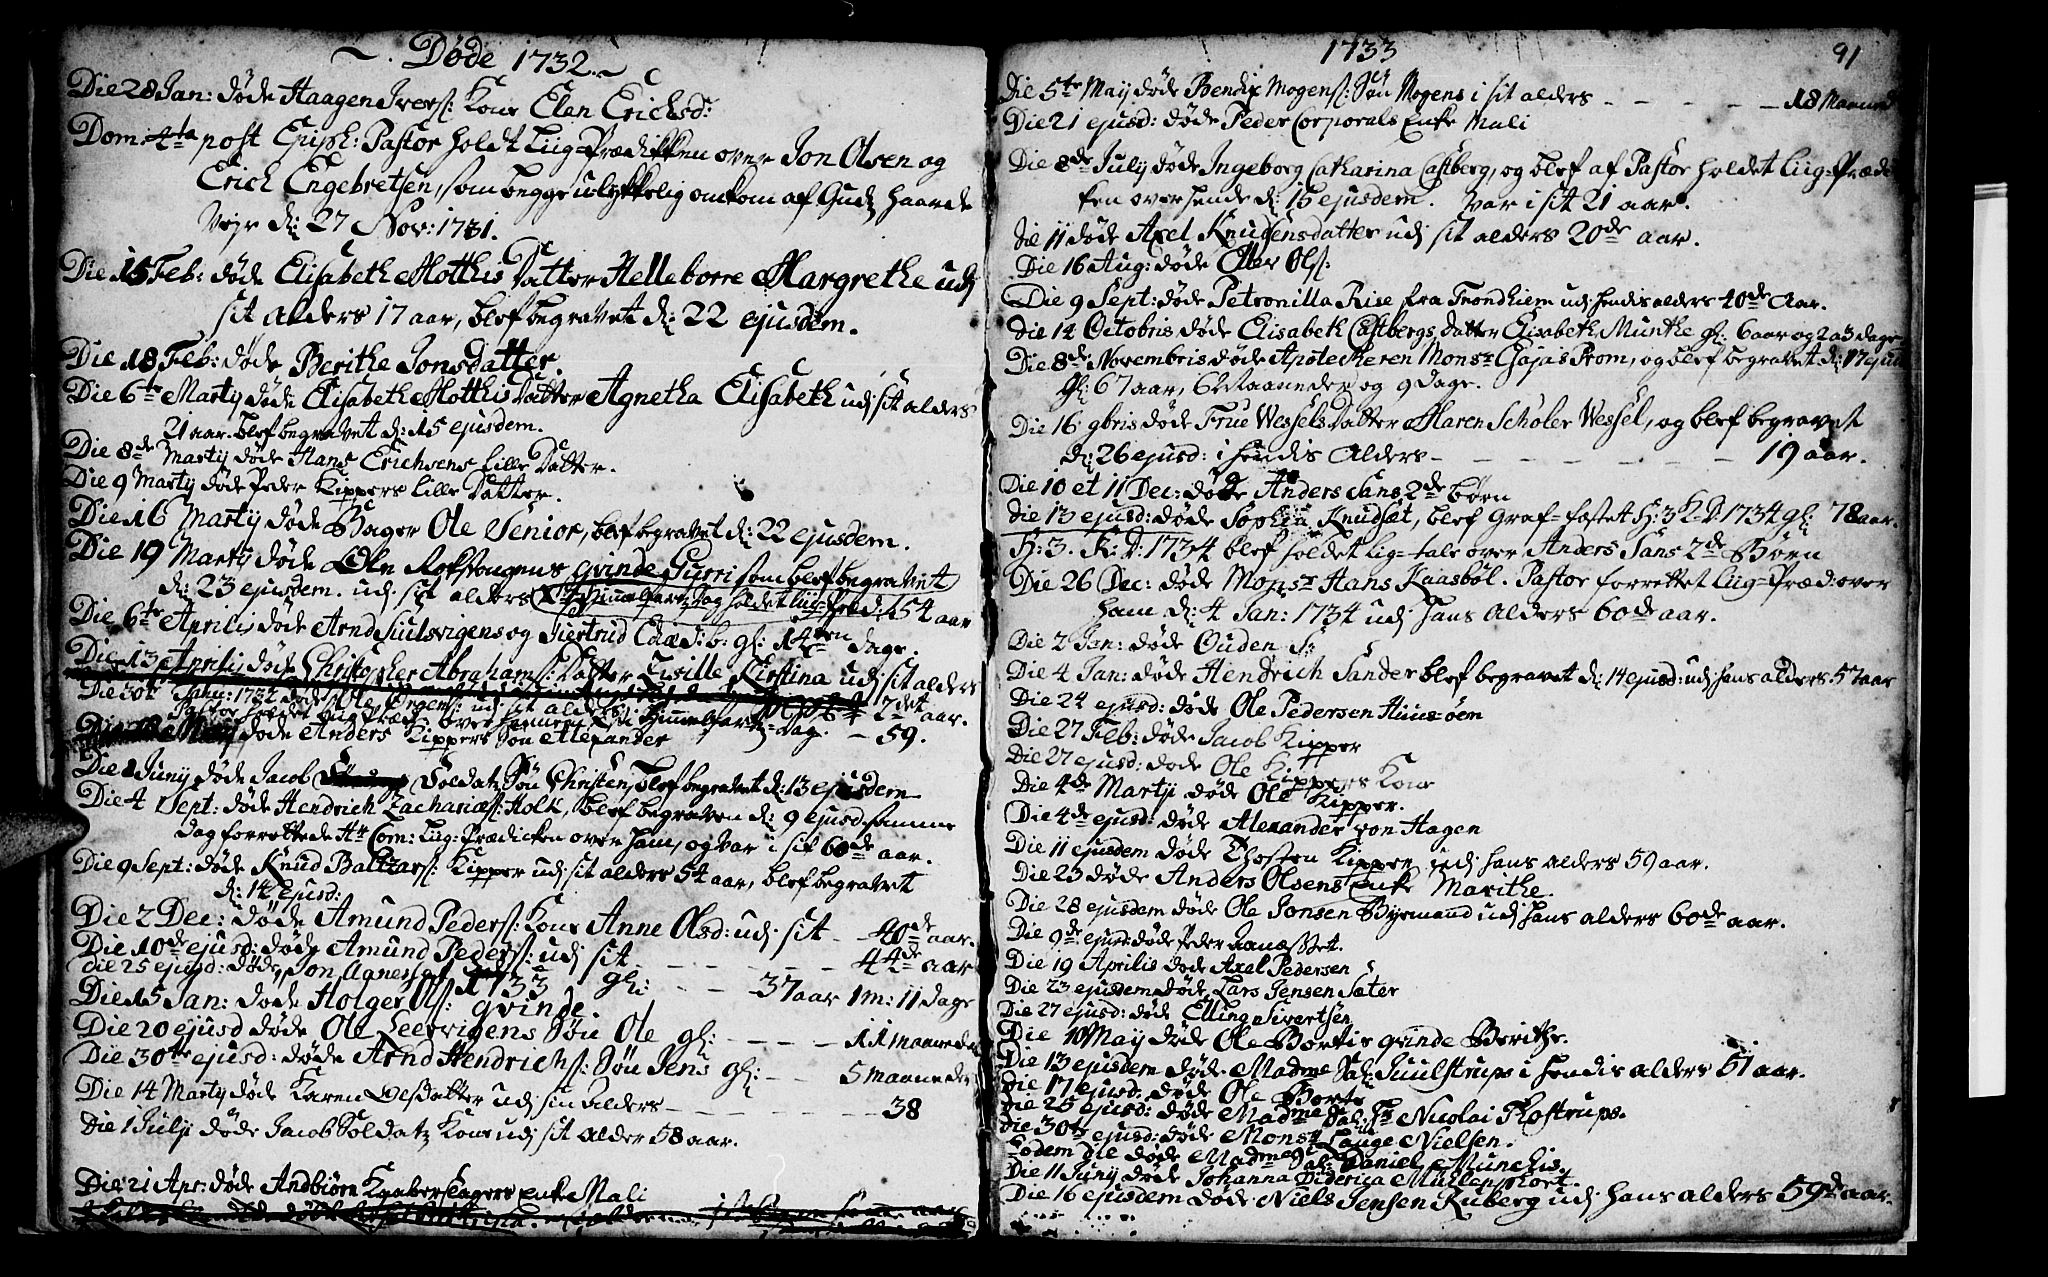 Døde 1732.
Die 28 Jan: døde Haagen Ivers: Kone Elen Erichsd:
Dom: 4ta post Epiph: Pastor holdt Liig-Prædikken over Jon Olsen og
Erich Engebretsen, som begge ulykkelig omkom af Gudz haarde
Vejr d: 27 Nov: 1731.
Die 15 Feb: døde Elisabeth Datter Helleborre Margrethe udj
sit alders 17 aar, blef begravet d: 22 ejusdem.
Die 18 Feb: døde Berithe Jonsdatter.
Die 6te Martij døde Elisabeth Datter Agnetha Elisabeth udj sit alders
21 aar. blef begravet d: 15 ejusdem.
Die 8de Martij døde Hans Erichsens lille Datter.
Die 9 Martij døde Peder Kippers lille Datter.
Die 16 Martij døde Bager Ole Senior, blef begravet d: 22 ejusdem.
Die 19 Martij døde Ole qvinde Gurri som blef begravet
d: 23 ejusdem. udj sit alders 54 aar
Die 6te Aprilis døde Arnd og Giertrud gl: 14ten dage.
Die 13 Aprilis døde Christopher Abrahams: Datter Zisille Kirstina udj sit alders
2det aar.
Die 30te Janu: 1732 døde udj sit alders
Pastor holdet Liig Præd: over hannem Chr: Himmelfartz-dag. - 59.
døde Anders Kippers Søn Alexander
Die 8 Junij døde Jacob Soldatz Søn Christen, blef begravet d: 13 ejusdem
Die 4 Sept: døde Hendrich Zachariæs: Holk, blef begraven d: 9 ejusd. samme
dag forrettede Hr Corn: Liig-Prædicken over ham, og var i sit 60de aar.
Die 9 Sept: døde Knud Baltzars: Kipper udj sit alders 54 aar, blef begravet
d: 14 ejusd:
Die 2 Dec: døde Amund Peders: Kone Anne Olsd: udj sit - - 40de aar.
Die 10de ejusd: døde Amund Peders: udj sit - - - - - 44de aar
Die 25 ejusd: døde Jon gl: - - - 37 aar 1 m: 11 dage
1733
Die 15 Jan: døde Holger Ols: qvinde
Die 20 ejusd døde Ole Søn Ole gl: - - - - 11 maaneder
Die 30te ejusd: døde Arnd Hendrichs: Søn Jens gl: - - 5 maaneder
Die 14 Martij døde Karen Olsdatter udj sin alders - - - - - 38
Die 1 Julij døde Jacob Soldatz Kone udj sit alder 58 aar.
Die 21 Apr: døde Andbiørn Enke Mali
1733
91
Die 5te Maij døde Bendix Mogens: Søn Mogens i sit alders - - - - - 18 Maaned
Die 21 ejusd: døde Peder Corporals Enke Mali
Die 8de Julij døde Ingeborg Catharina Castberg, og blef af Pastor holdet Liig-Præde
ken over hende d: 15 ejusdem. Var i sit 21 aar.
Die 11 døde Axel Knudsensdatter udj sit alders 20de aar.
Die 16 Aug: døde Ols:
Die 9 Sept: døde Petronilla Rise fra Trondhiem udj hendis alders 40de Aar.
Die 14 Octobris døde Elisabeth Castbergs Datter Elisabeth Munthe gl: 6 aar og 2 a 3 dage
Die 8de Novembris døde Apotecheren Monsr Prom, og blef begravet d: 17 ejusd
gl: 67 aar, 6 Maaneder og 9 dage.
Die 16 9bris døde Frue Wessels Datter Maren Schøler Wessel, og blef begravet
d: 26 ejusd: i hendis Alders - - - - - - 19 aar.
Die 10 et 11 Dec: døde Anders Sans 2de børn
Die 13 ejusd: døde Sophia Knudsæt, blef Graf-fæstet H: 3 K. D: 1734 gl: 78 aar.
H: 3. K. D: 1734 blef holdet Lig-tale over Anders Sans 2de Børn
Die 26 Dec: døde Monsr Hans Kaasbøl. Pastor forrettet Liig-Præd: over
ham d: 4 Jan: 1734 udj hans alders 60de aar.
Die 2 Jan: døde Ouden
Die 4 Jan: døde Hendrich Sander blef begravet d: 14 ejusd: udj hans alders 57 aar
Die 24 ejusd: døde Ole Pedersen
Die 27 Feb: døde Jacob Kipper
Die 27 ejusd: døde Ole Kippers Kone
Die 4de Martij døde Ole Kipper.
Die 4de ejusd: døde Alexander von Hagen
Die 11 ejusdem døde Thosten Kipper udj hans alders 59 aar.
Die 23 døde Anders Olsens Enke Marithe.
Die 28 ejusdem døde Ole Jonsen Byemand udj hans alders 60de aar.
Die 9de ejusd: døde Peder
Die 19 Aprilis døde Axel Pedersen
Die 23 ejusdem døde Lars Jensen Sæter
Die 27 ejusd: døde Elling Sivertsen
Die 10 Maij døde Ole Bortis qvinde Berithe.
Die 13 ejusdem døde Madme Sal: Juulstrups i hendis alders 51 aar.
Die 17 ejusd: døde Ole Borte
Die 25 ejusd: døde Madme Sal: Hr Nicolai Thostrups.
Die 30te ejusd: døde Monsr Lauge Nielsen.
Eodem die døde Madme Sal: Daniel Munchis.
Die 11 Junij døde Johanna Diderica Müllenphort.
Die 16 ejusdem døde Niels Jensen Ruberg udj hans alders 59de aar.